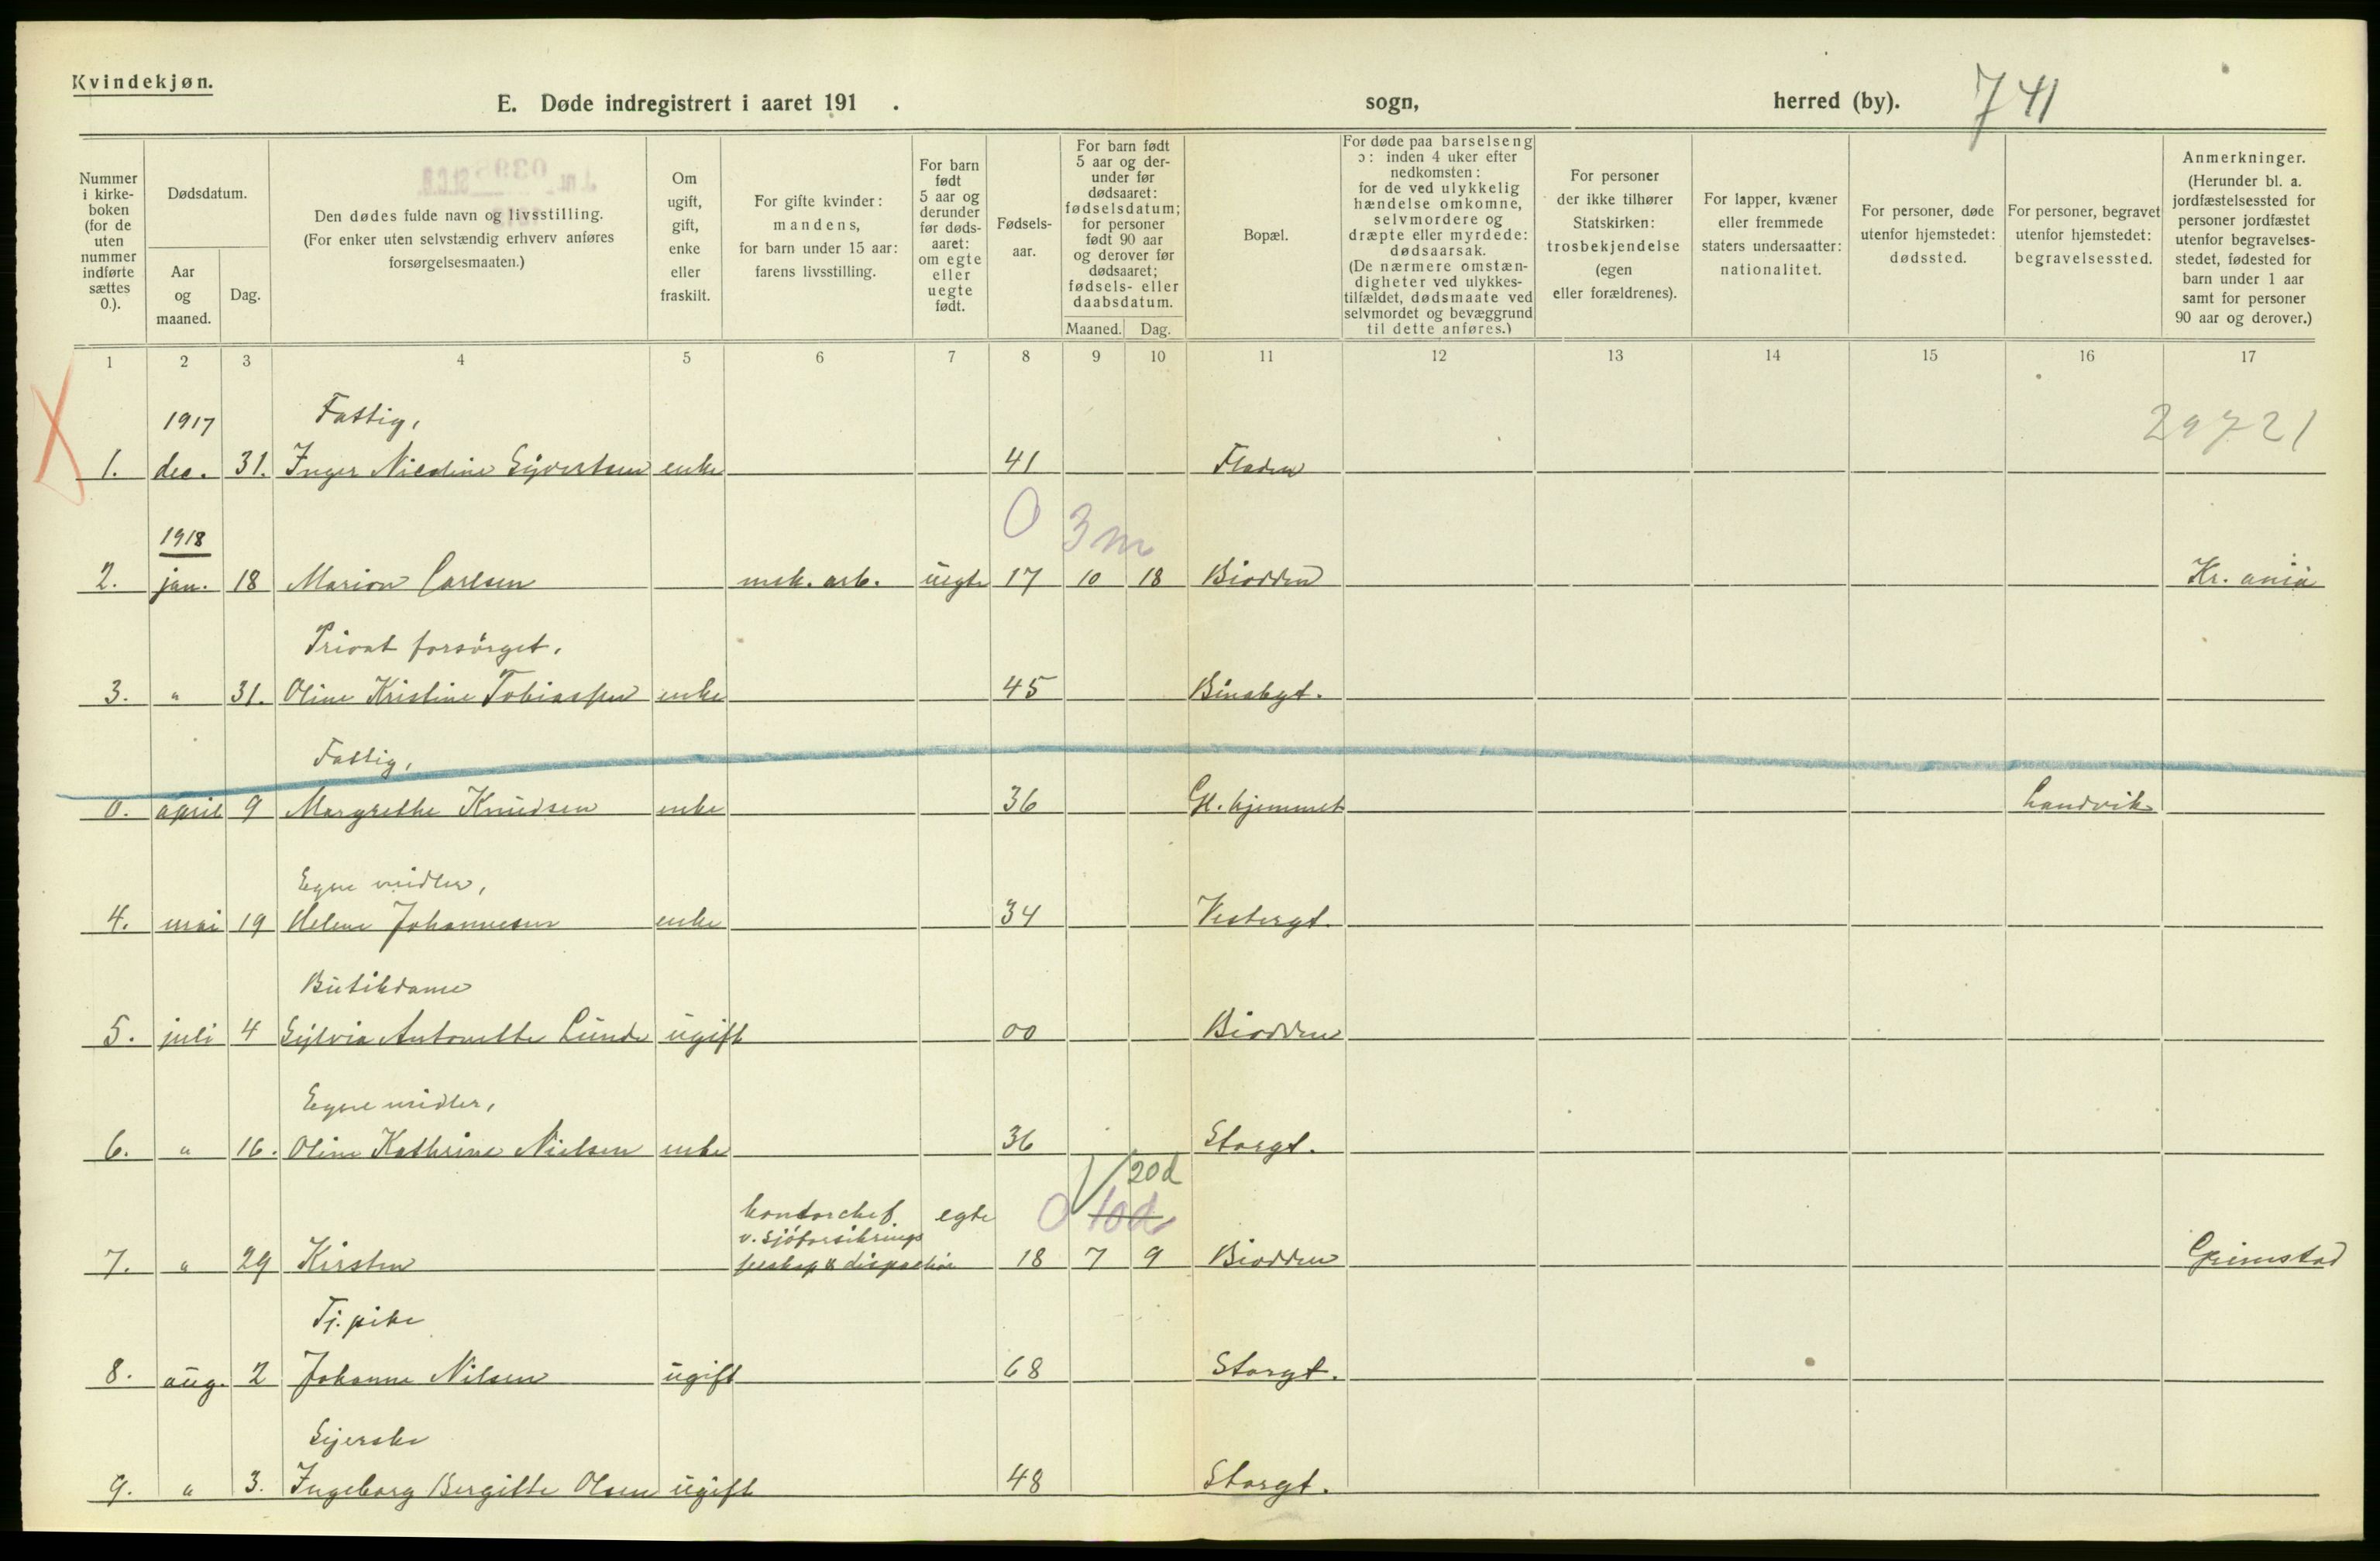 Kvindekjøn.
E. Døde indregistrert i aaret 191 .
sogn,
herred (by).
741
Nummer i kirke-boken (for de uten nummer indførte sættes 0.).
Dødsdatum.
Aar og maaned.
Dag.
Den dødes fulde navn og livsstilling.
(For enker uten selvstændig erhverv anføres forsørgelsesmaaten.)
Om ugift, gift, enke eller fraskilt.
For gifte kvinder: mandens, for barn under 15 aar: farens livsstilling.
For barn født 5 aar og derunder før døds-aaret: om egte eller uegte født.
Fødsels-aar.
For barn født 5 aar og der-under før dødsaaret: fødselsdatum; for personer født 90 aar og derover før dødsaaret; fødsels- eller daabsdatum.
Maaned.
Dag.
Bopæl.
For døde paa barselseng ɔ: inden 4 uker efter nedkomsten: for de ved ulykkelig hændelse omkomne, selvmordere og dræpte eller myrdede: dødsaarsak. (De nærmere omstæn-digheter ved ulykkes-tilfældet, dødsmaate ved selvmordet og bevæggrund til dette anføres.)
For personer der ikke tilhører Statskirken: trosbekjendelse (egen eller forældrenes).
For lapper, kvæner eller fremmede staters undersaatter: nationalitet.
For personer, døde utenfor hjemstedet: dødssted.
For personer, begravet utenfor hjemstedet: begravelsessted.
Anmerkninger. (Herunder bl. a. jordfæstelsessted for personer jordfæstet utenfor begravelses-stedet, fødested for barn under 1 aar samt for personer 90 aar og derover.)
1 2 3 4 5 6 7 8 9 10 11 12 13 14 15 16 17
1917 Fattig,
1. dec. 31. Inger Nicoline Syvertsen enke 41 Fladen
1918 0 3 m
2. jan. 18 Marion Carlsen msk. arb. uegte 17 10 18 Biodden Kr. ania
Privat forsørget,
3. " 31. Oline Kristine Tobiassen enke 45 Binabgt.
Fattig,
0. april 9 Margrethe Knudsen enke 36 Gl. hjemmet Landvik
Egne midler,
4. mai 19 Helene Johannesen enke 34 Vestergt.
Butikdame
5. juli 4 Sylvia Antonette Lunde ugift 00 Biodden
Egne midler,
6. " 16. Oline Kathrine Nielsen enke 36 Storgt.
20d
kontorchef egte 0 10d
v. sjøforsikrings
7. " 29 Kirsten selskap & dispachør 18 7 9 Biodden Grimstad
Tj. pike
8. aug. 2 Johanne Nilsen ugift 68 Storgt.
Syerske
9. " 3. Ingeborg Bergitte Olsen ugift 48 Storgt.